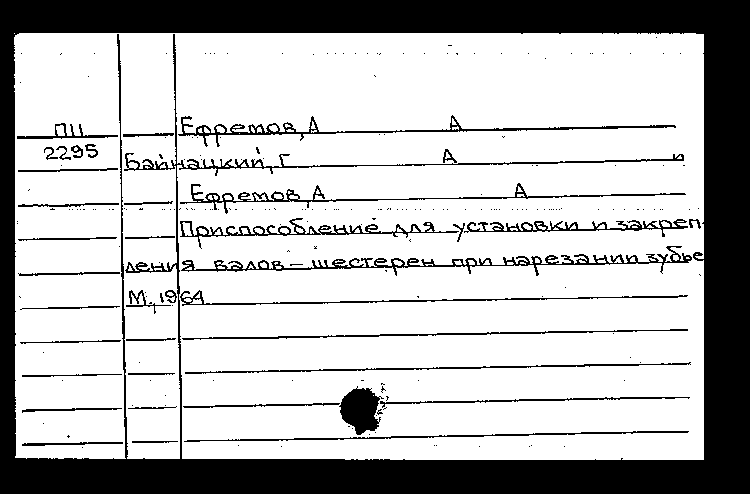 П11 Ефремов, А А
2295 Байнацкий, Г А и
Ефремов, А А
Приспособление для установки и закреп-
ления валов – шестерен при нарезании зубье
М., 1964